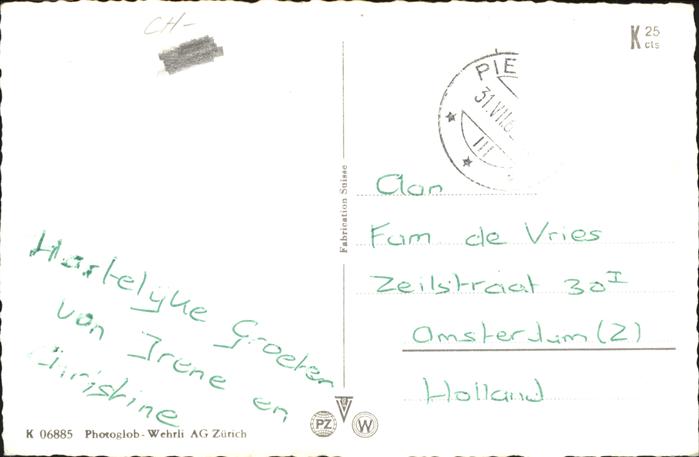 CH-
K 25
cts
PIE
31.VII.6
Fabrication Suisse
Aan
Fam de Vries
Zeilstraat 30 I
Amsterdam (Z)
Holland
Hartelijke Groeten
van Irene en
Christine
K 06885 Photoglob-Wehrli AG Zürich
PZ
W